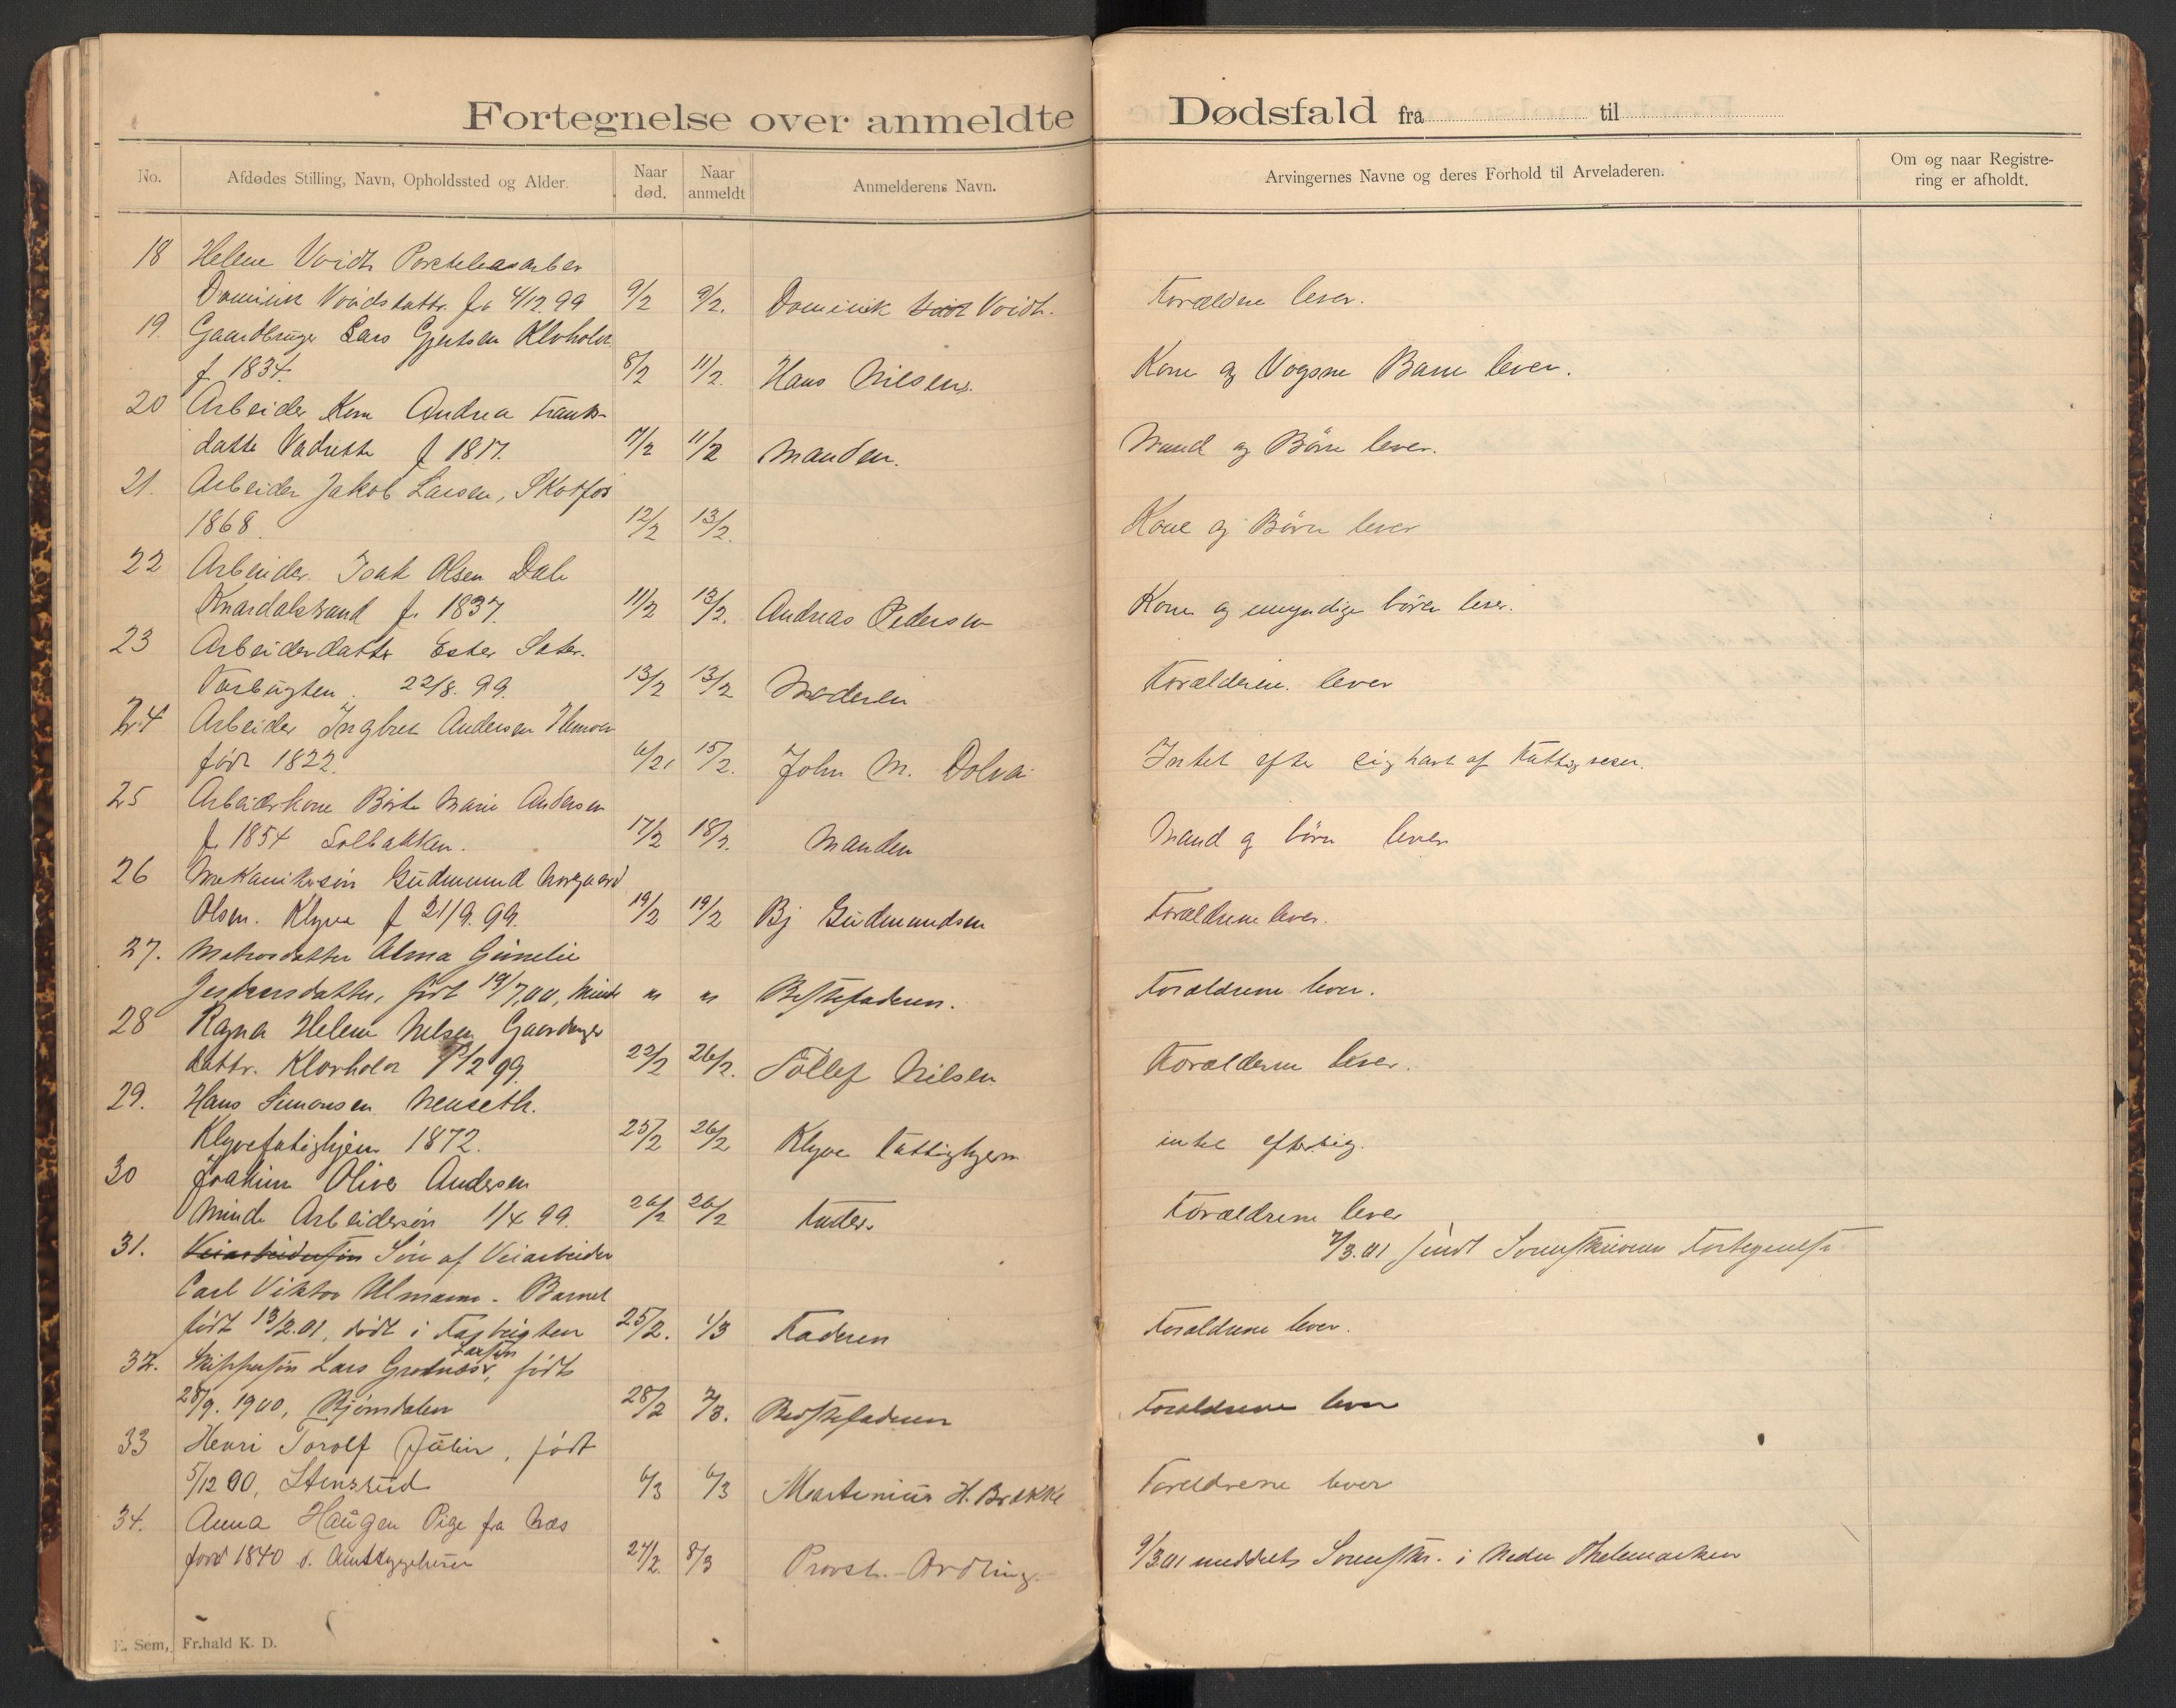 Fortegnelse over anmeldte Dødsfald fra til
No. Afdødes Stilling, Navn, Opholdssted og Alder. Naar død. Naar anmeldt Anmelderens Navn. Arvingernes Navne og deres Forhold til Arveladeren. Om og naar Registrering er afholdt.
18 Helene Voidt
Dominik f. 4/12 99 9/2 9/2. Dominik Voidt. Forældrene lever.
19. Gaardbruger Lars Gjertsen Klovholt
f. 1834. 8/2 11/2. Hans Nilsen. Kone og Vogsne Barn lever.
20 Arbeider Kone Andrea
datter f 1817. 11/2 11/2 Manden. Mand og Børn lever.
21. Arbeider Jakob Larsen, Skotfos
1868. 12/2 13/2. Kone og Børn lever
22 Arbeider Isak Olsen Dale
Knardalstrand f. 1837. 11/2 13/2. Andreas Pedersen Kone og umyndige børn lever.
23 Arbeiderdatter Ester
22/8. 99. 13/2 13/2 Moderen Forældrene lever
24 Arbeider Ingbret Andersen
født 1822. 15/2. John M. Dolva Intet efter sig
25 Arbeiderkone Birte Marie Andersen
f. 1854 Solbakken. 17/2 18/2. Manden Mand og børn lever
26 Mekanikersøn Gudmund
Olsen. Klyve f 21/9. 99. 19/2 19/2 Bj Gudmundsen Forældrene lever.
27. Matrosdatter Alma
født 19/7.00, Minde " " Bestefaderen. Forældrene lever.
28 Ragna Helene Nilsen Gaardbruger
dattr. Klovholt 99. 22/2 26/2. Tollef Nilsen Forældrene lever.
29. Hans Simonsen Menseth.
Klyvefatighjem 1872. 25/2 26/2 Klyve Fattighjem intet efter sig.
30 Joakim Oliver Andersen
Minde Arbeidersøn 1/4 99. 26/2 26/2 Forældrene lever
31. Veiarbeidersøn Søn af Veiarbeider 7/3.01 sendt Sorenskriveren Fortegnelse
Carl Viktor Ulmann. Barnet
født 13/2.01, dødt i 25/2. 1/3 Faderen Forældrene lever.
Larsen
32. Skippersøn Lars født
28/9. 1900, Bjørndalen 28/2 2/3. Bedstefaderen Forældrene lever
33 Henri Torolf Julin, født
5/12 00, Stensrud 6/3 6/3 Martinius H. Brække Foreldrene lever
34. Anna Haugen Pige fra Næs
født 1840 d. Amtssygehuset 27/2. 8/3 Provst 9/3.01 meddelt Sorenskr. i Nedre Thelemarken
E. Sem, Fr.hald K. D.